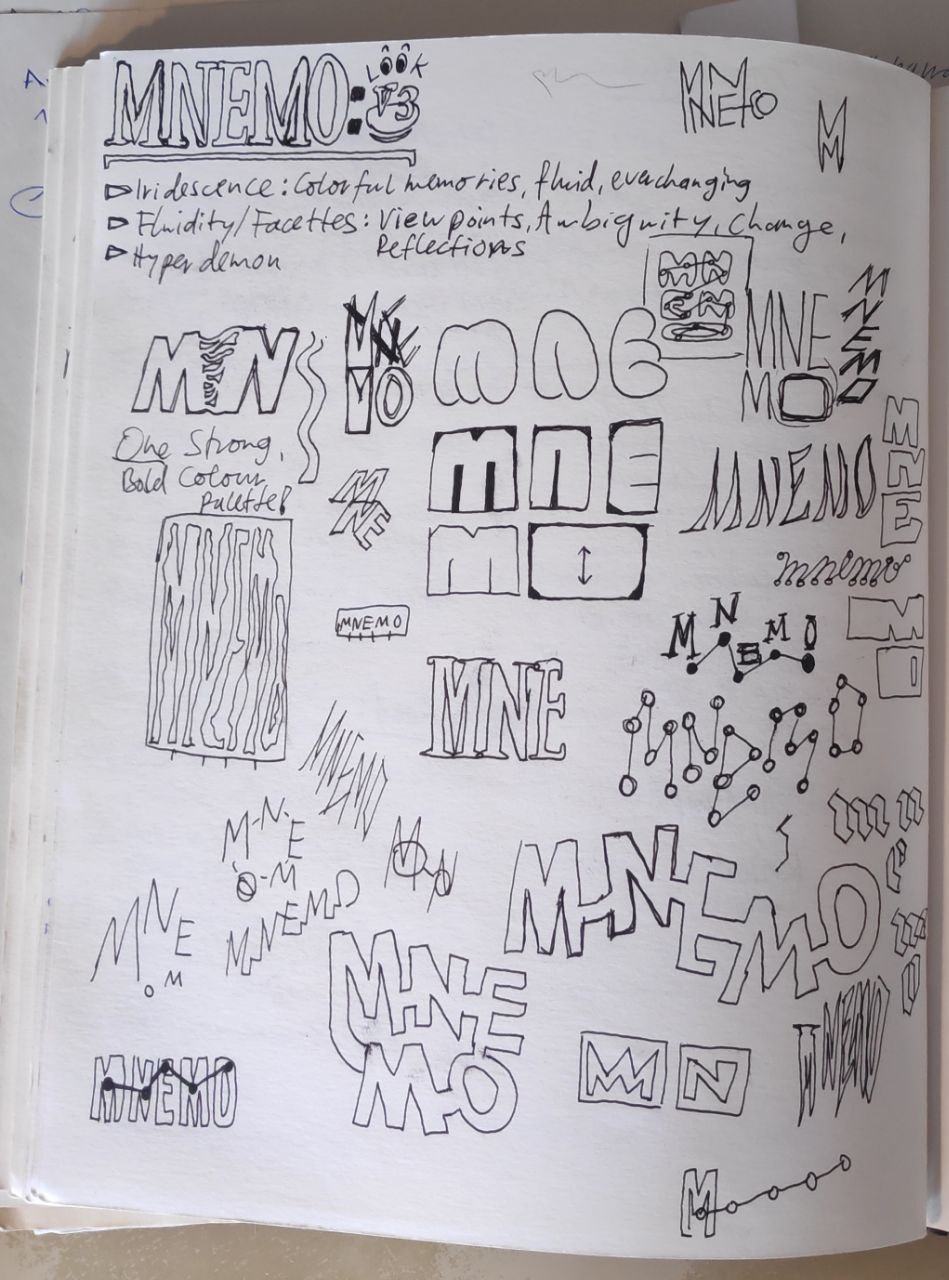 MNEMO: LOOK V3
MNEMO
M
▷ Iridescence: Colorful memories, fluid, everchanging
▷ Fluidity/Facettes: Viewpoints, Ambiguity, Change,
Reflections
▷ Hyperdemon
MN
EM
O
MNE
MO
MNEMO
MN
MNE
MO
mne
m
One Strong,
Bold Colour
palette!
MNE
mne
m ↕
MNEMO
MNEMO
mnemo
MNEMO
MNEMO
MNEMO
MNE
MNEMO
MNEMO
M-N-E
O-M
MNEMO
MON
MNEMO
mnemo
MNE
MO
MNE
MO
MNEMO
M N
MNEMO
M